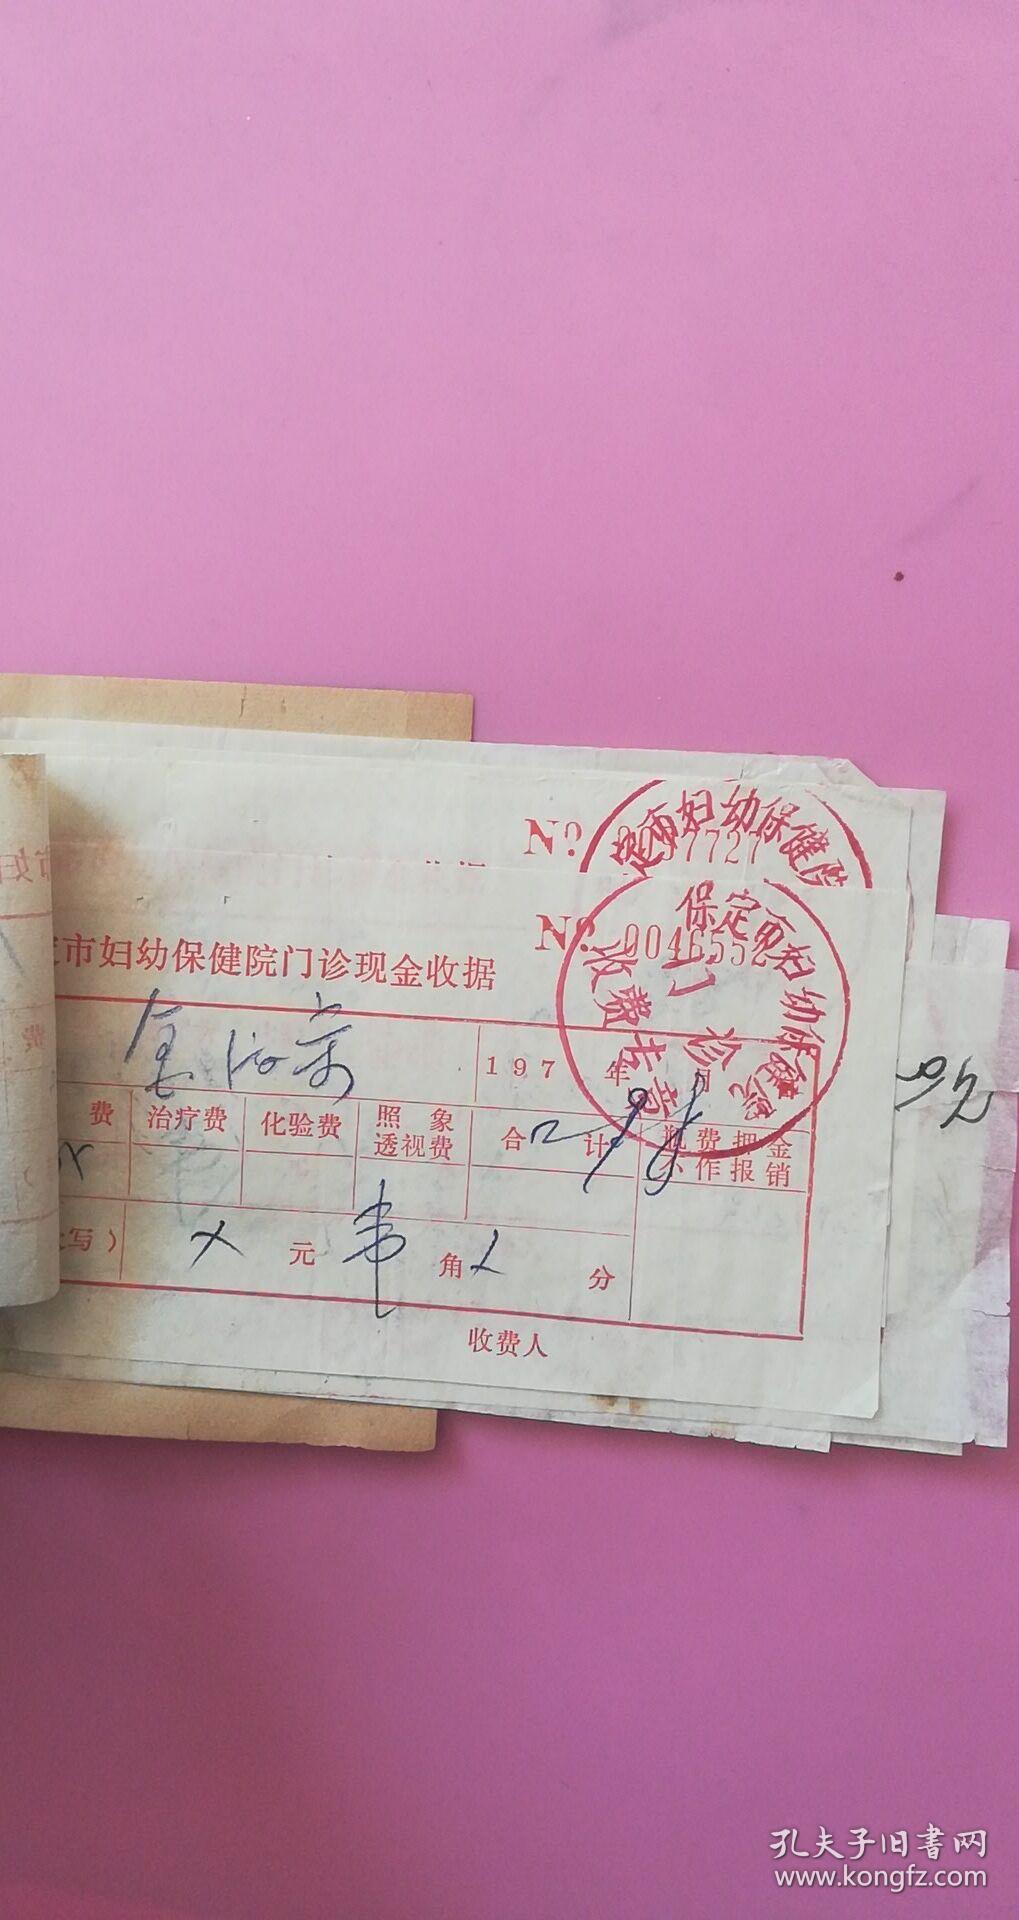 市妇
定市妇幼保健院
No. 0057727
保定市妇幼保健院
门诊
收费专章
No. 0046552
定市妇幼保健院门诊现金收据
金
197 年
费 治疗费 化验费 照象透视费 合计 瓶费押金不作报销
费
写） 元 角 分
收费人
孔夫子旧书网
www.kongfz.com